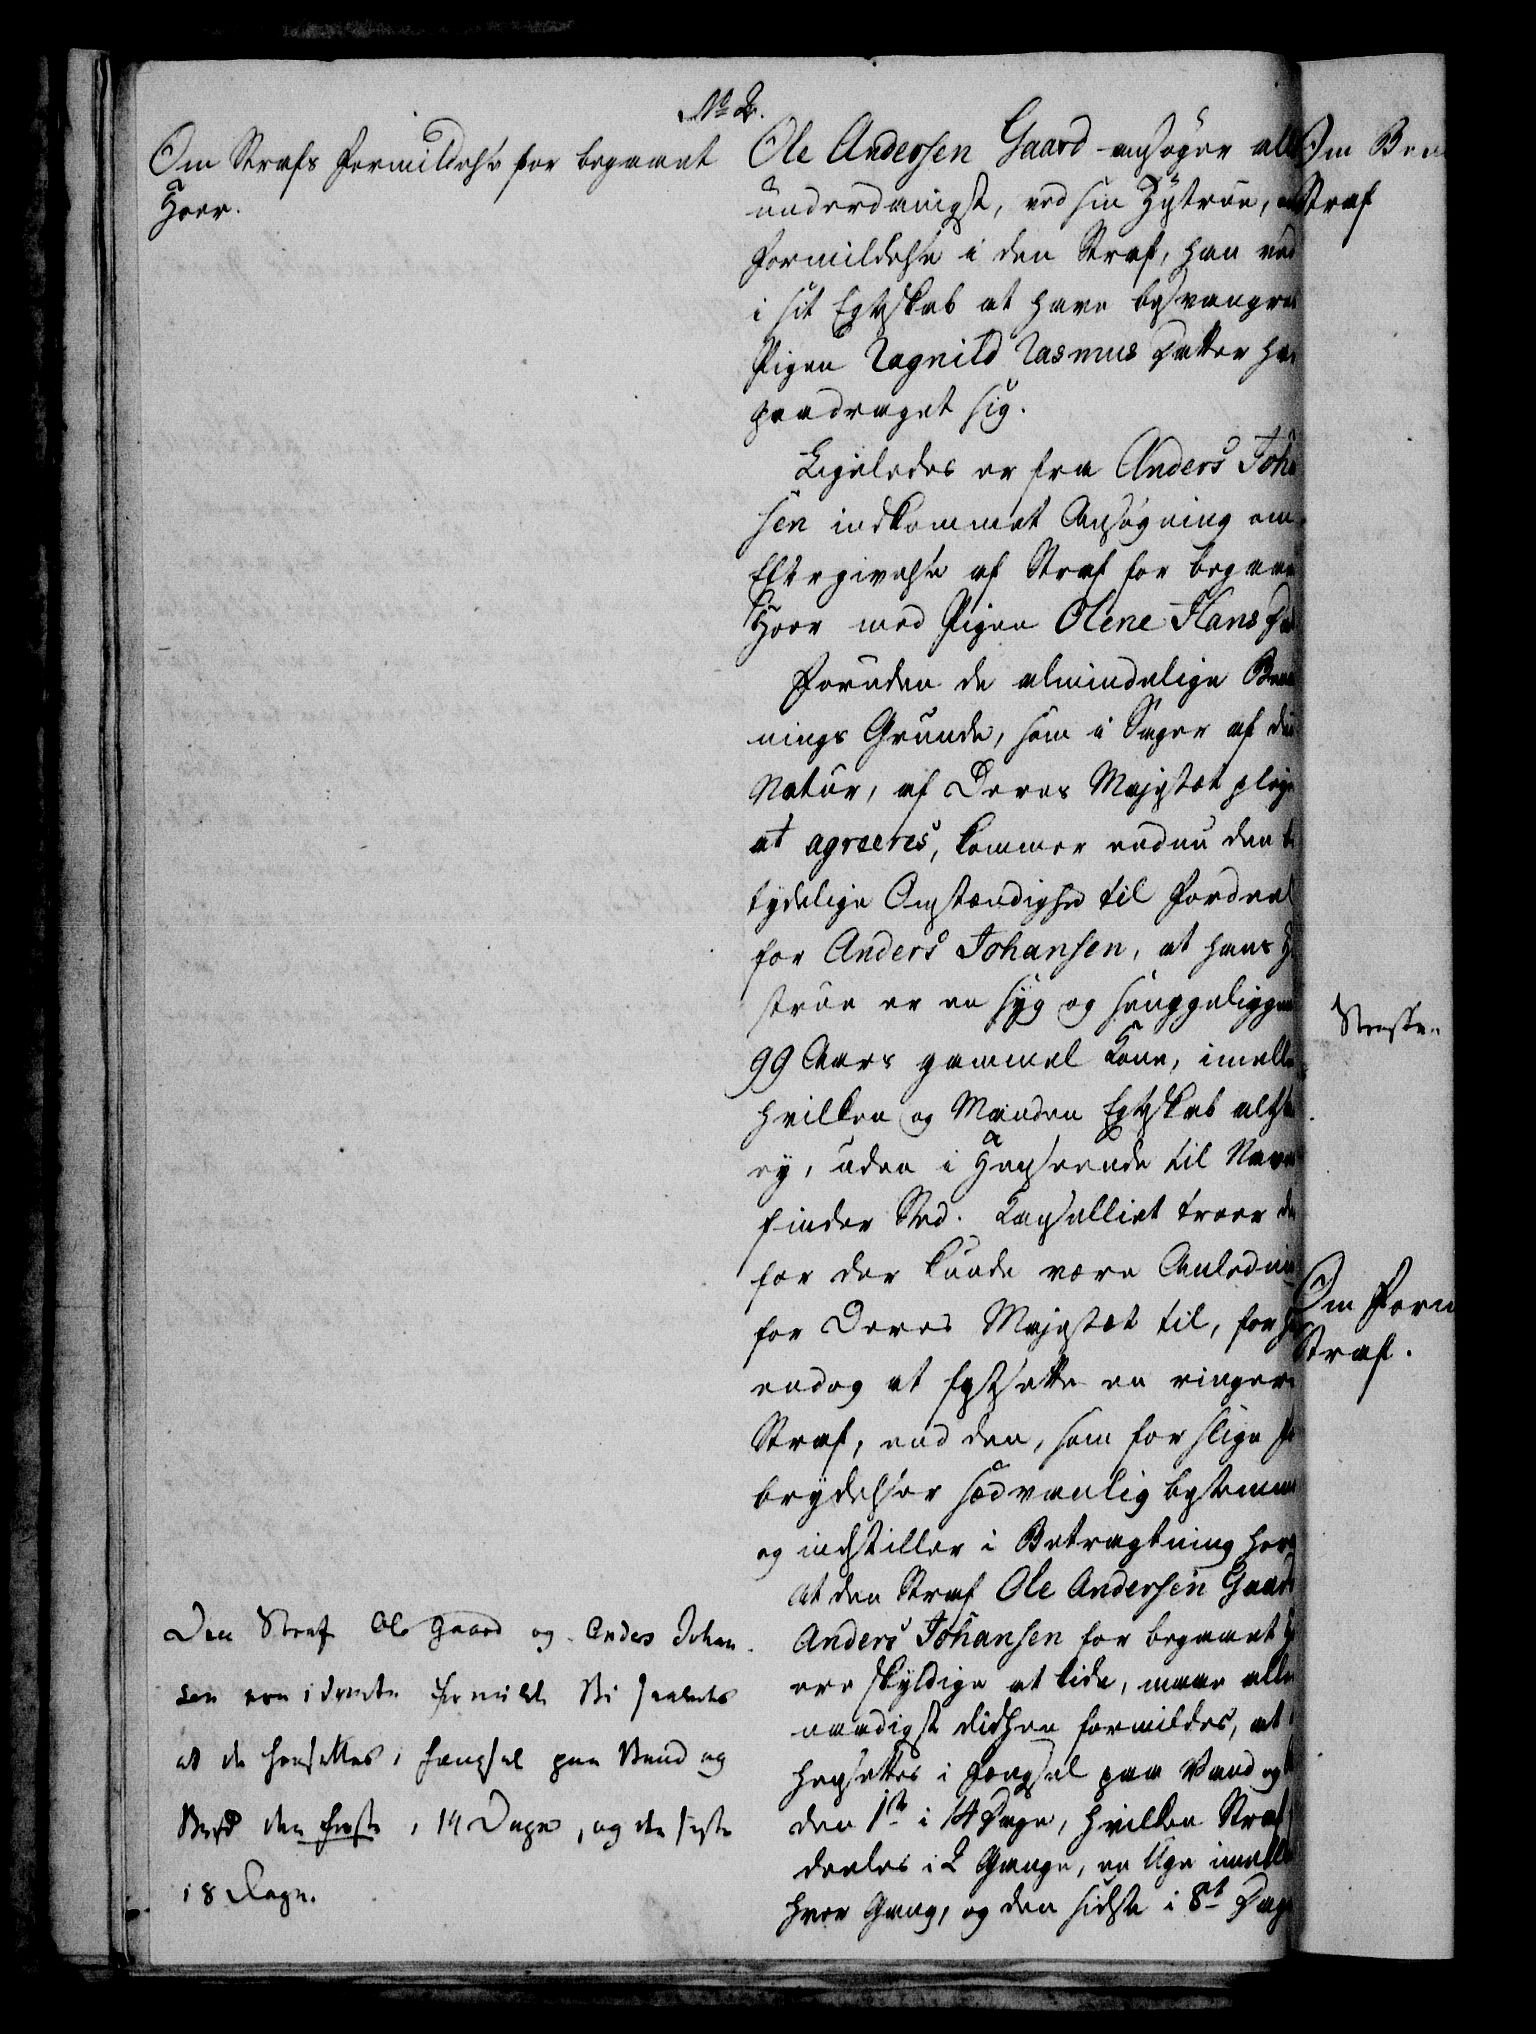 No 2.
Om Strafs Formildelse for begaaet
Hoer.
Ole Andersen Gaard ansøger all
underdanigst, ved sin Hustrue, om
Formildelse i den Straf, han ved
i sit Egteskab at have besvangret
Pigen Ragnild Rasmus Datter har
paadraget sig.
Ligeledes er fra Anders Joha
sen indkommet Ansøgning om
Eftergivelse af Straf for begaaet
Hoer med Pigen Olene Hans Da
Foruden de almindelige Bena
nings Grunde, som i Sager af den
Natur, af Deres Majestæt pleje
at agreeres, kommer endnu den
tydelige Omstændighed til Fordeel
for Anders Johansen, at hans Hu
strue er en syg og senggeliggen
99 Aars gammel Kone, imellem
hvilken og Manden Egteskab altsaa
ey, uden i Henseende til Navnet
finder Sted. Cancelliet troer der
for der kunde være Anledning
for Deres Majestæt til, for ham
endog at fastsætte en ringere
Straf, end den, som for slige For
brydelser sædvanlig bestemmes
og indstiller i Betragtning heraf
at den Straf Ole Andersen Gaard
Anders Johansen for begaaet Ho
ere skyldige at lide, maae aller
naadigst didhen formildes, at
hensættes i Fængsel paa Vand og B
den 1ste i 14 Dage, hvilken Straf
deeles i 2 Gange, en Uge imellem
hver Gang, og den sidste i 8te Dage
Den Straf Ole Gaard og Anders Johan
sen ere idømte formilde Vi saaledes
at de hensettes i Fængsel paa Vand og
Brød den første i 14 Dage, og den sidste
i 8 Dage.
Om Ben
Straf
Om Form
Straf.